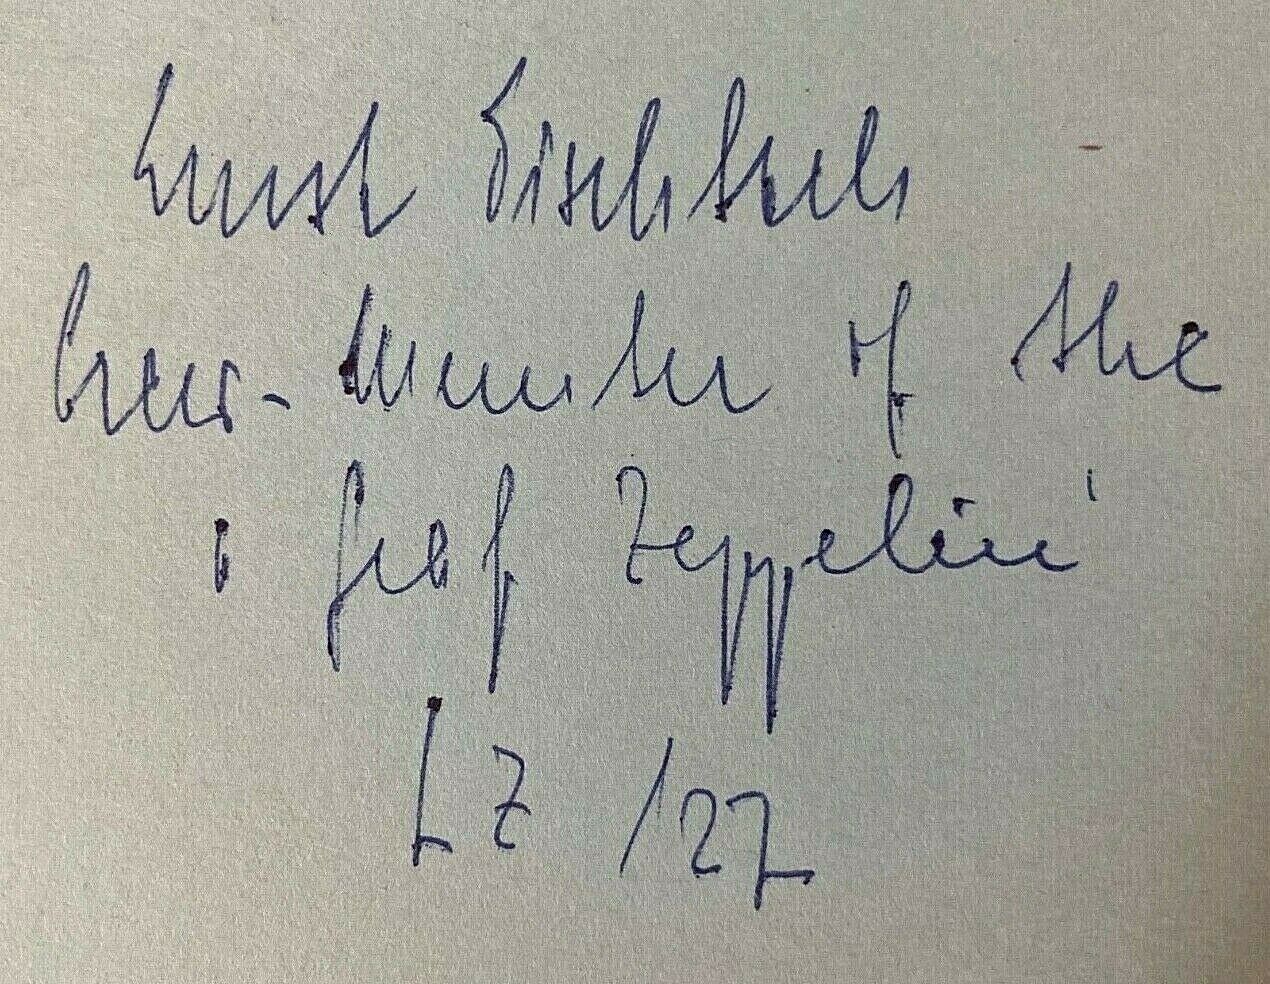 Ernst Fischbach
Crew-Member of the
' Graf Zeppelin'
LZ 127